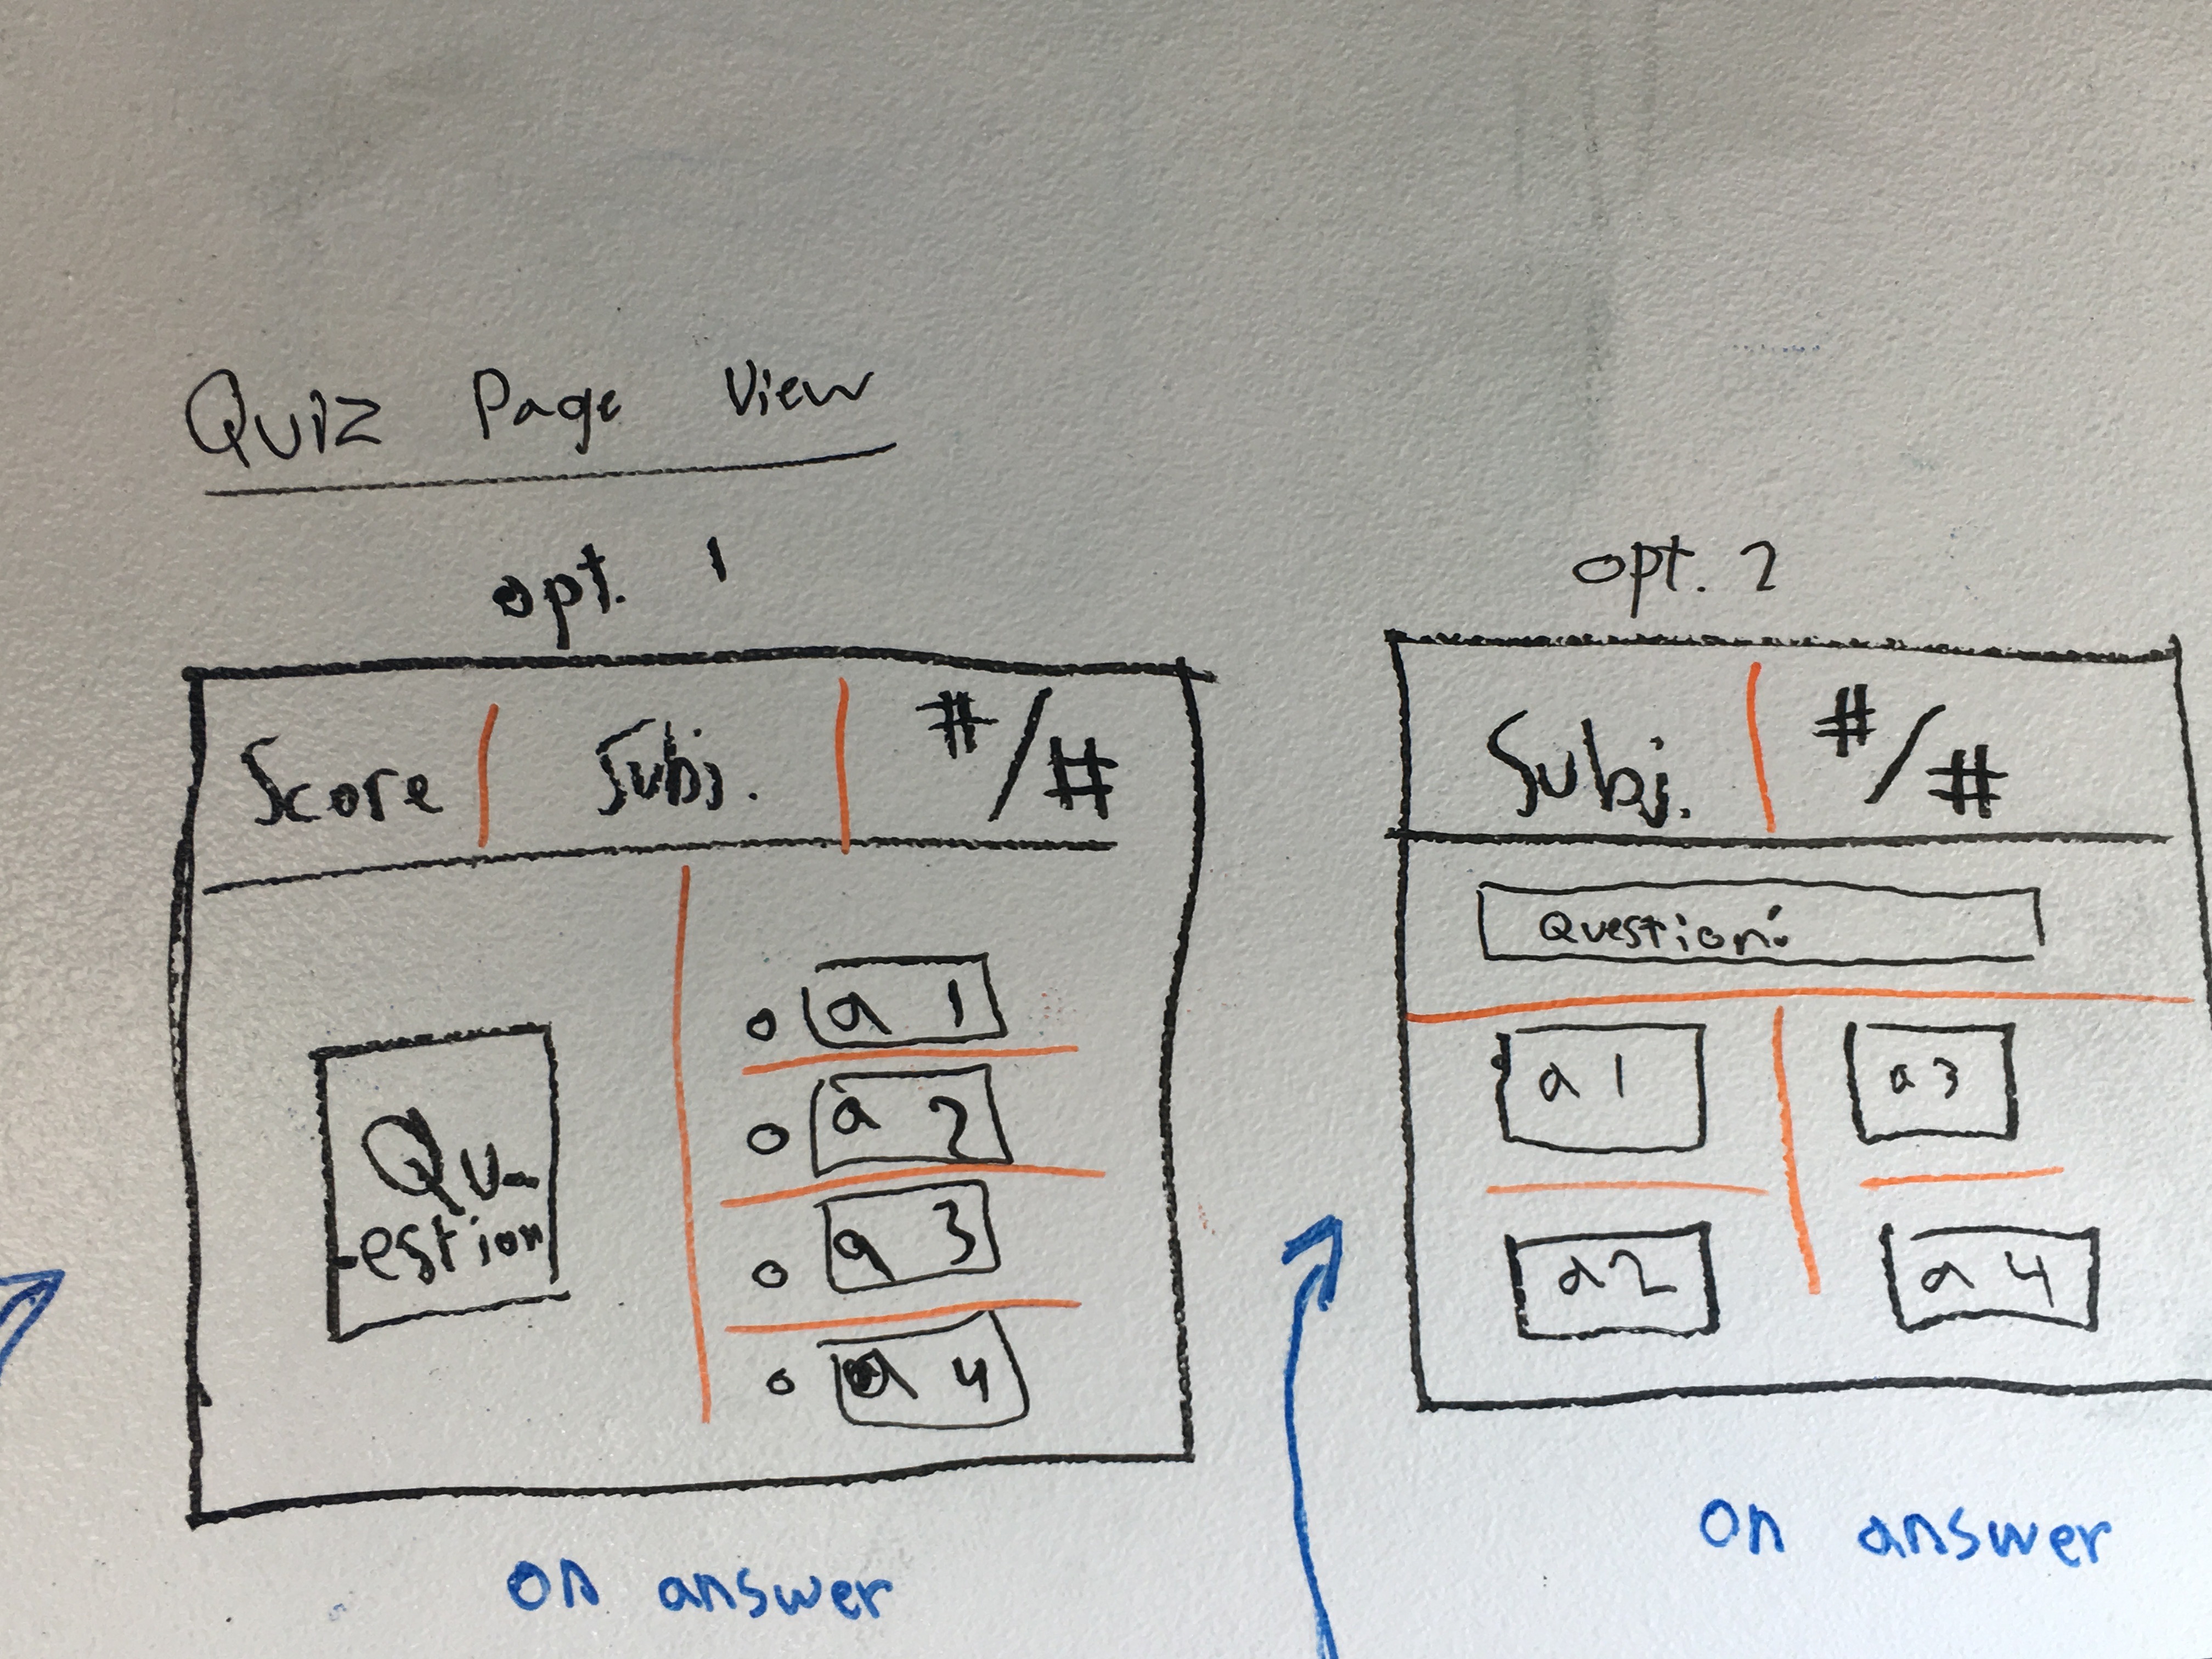 Quiz Page View
opt. 1
Score Subj. #/#
Qu-
-estion
a 1
a 2
a 3
a 4
on answer
opt. 2
Subj. #/#
Question:
a 1 a 3
a 2 a 4
on answer